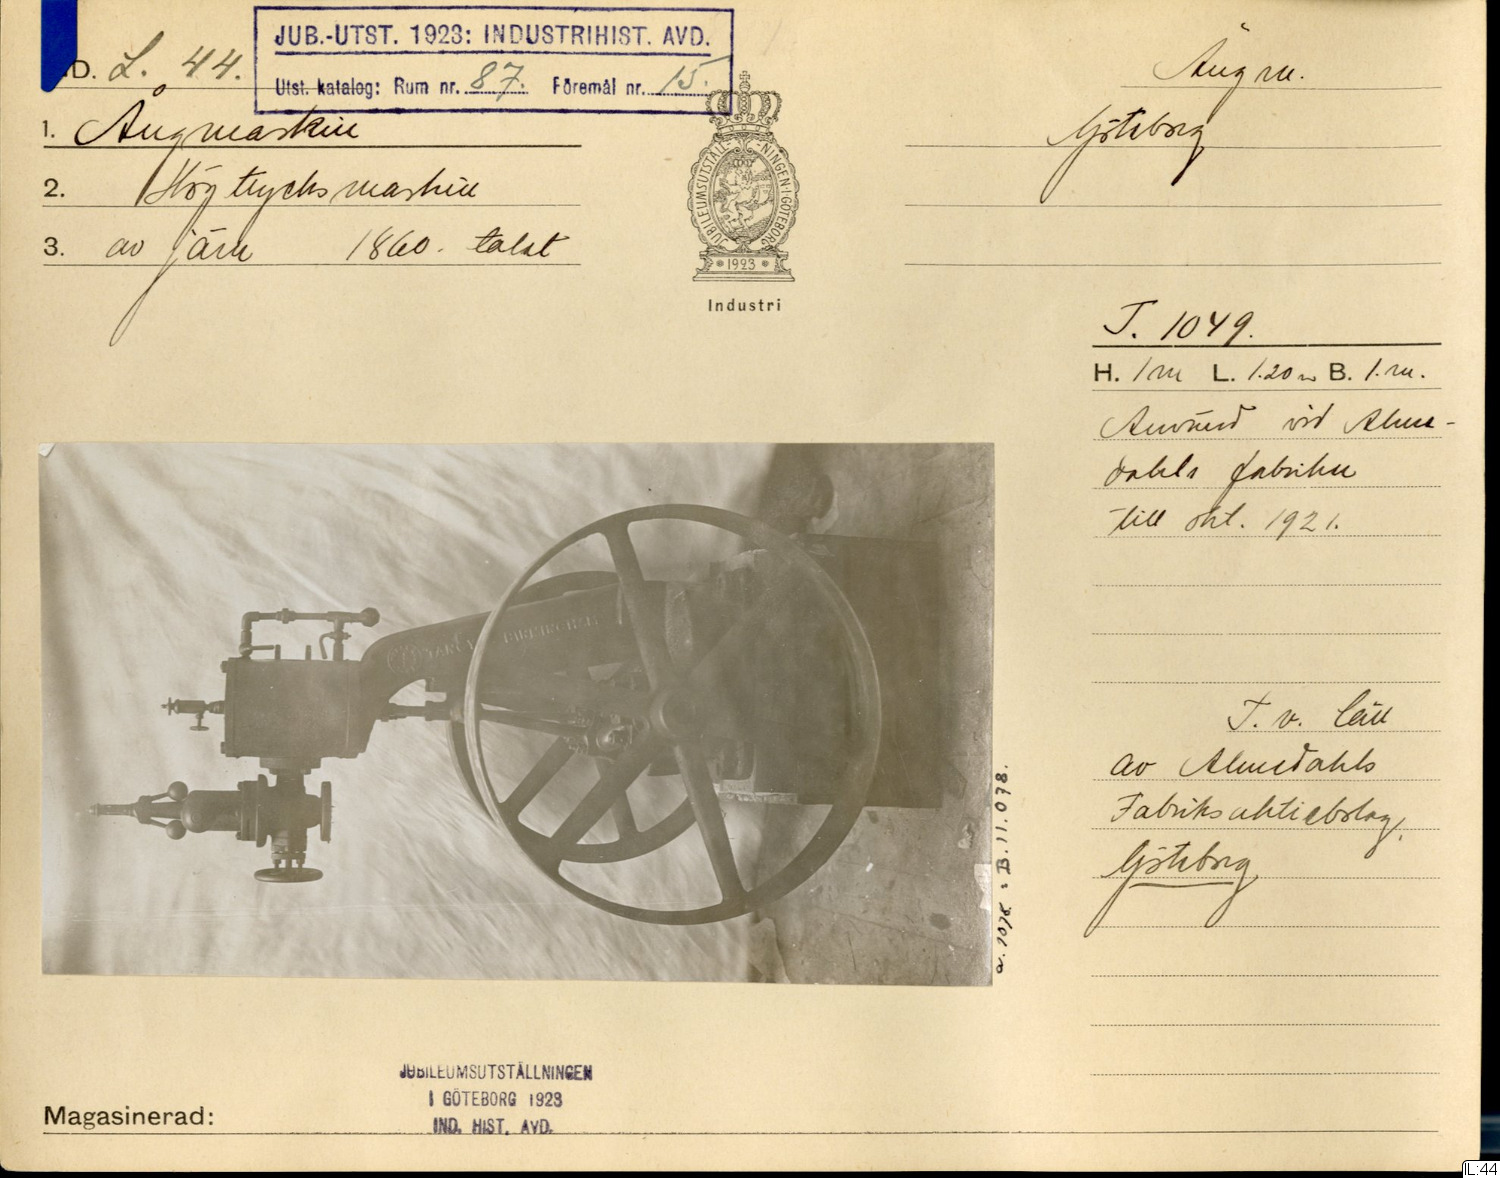 JUB.-UTST. 1923: INDUSTRIHIST. AVD.
Utst. katalog: Rum nr. 87. Föremål nr. 15.
D. L. 44.
1. Ångmaskin
2. Högtrycksmaskin
3. av järn 1860-talet
JUBILEUMSUTSTÄLLNINGEN I GÖTEBORG
1923
Industri
Ångm.
Göteborg
J. 1049.
H. 1 m L. 1.20 m B. 1. m.
Använd vid Alme-
dahls fabriker
till okt. 1921.
T. v. lån
av Almedahls
Fabriksaktiebolag,
Göteborg
TANGYE BIRMINGHAM
a. 1078 = B. 11.078.
JUBILEUMSUTSTÄLLNINGEN
I GÖTEBORG 1923
IND. HIST. AVD.
Magasinerad:
IL:44